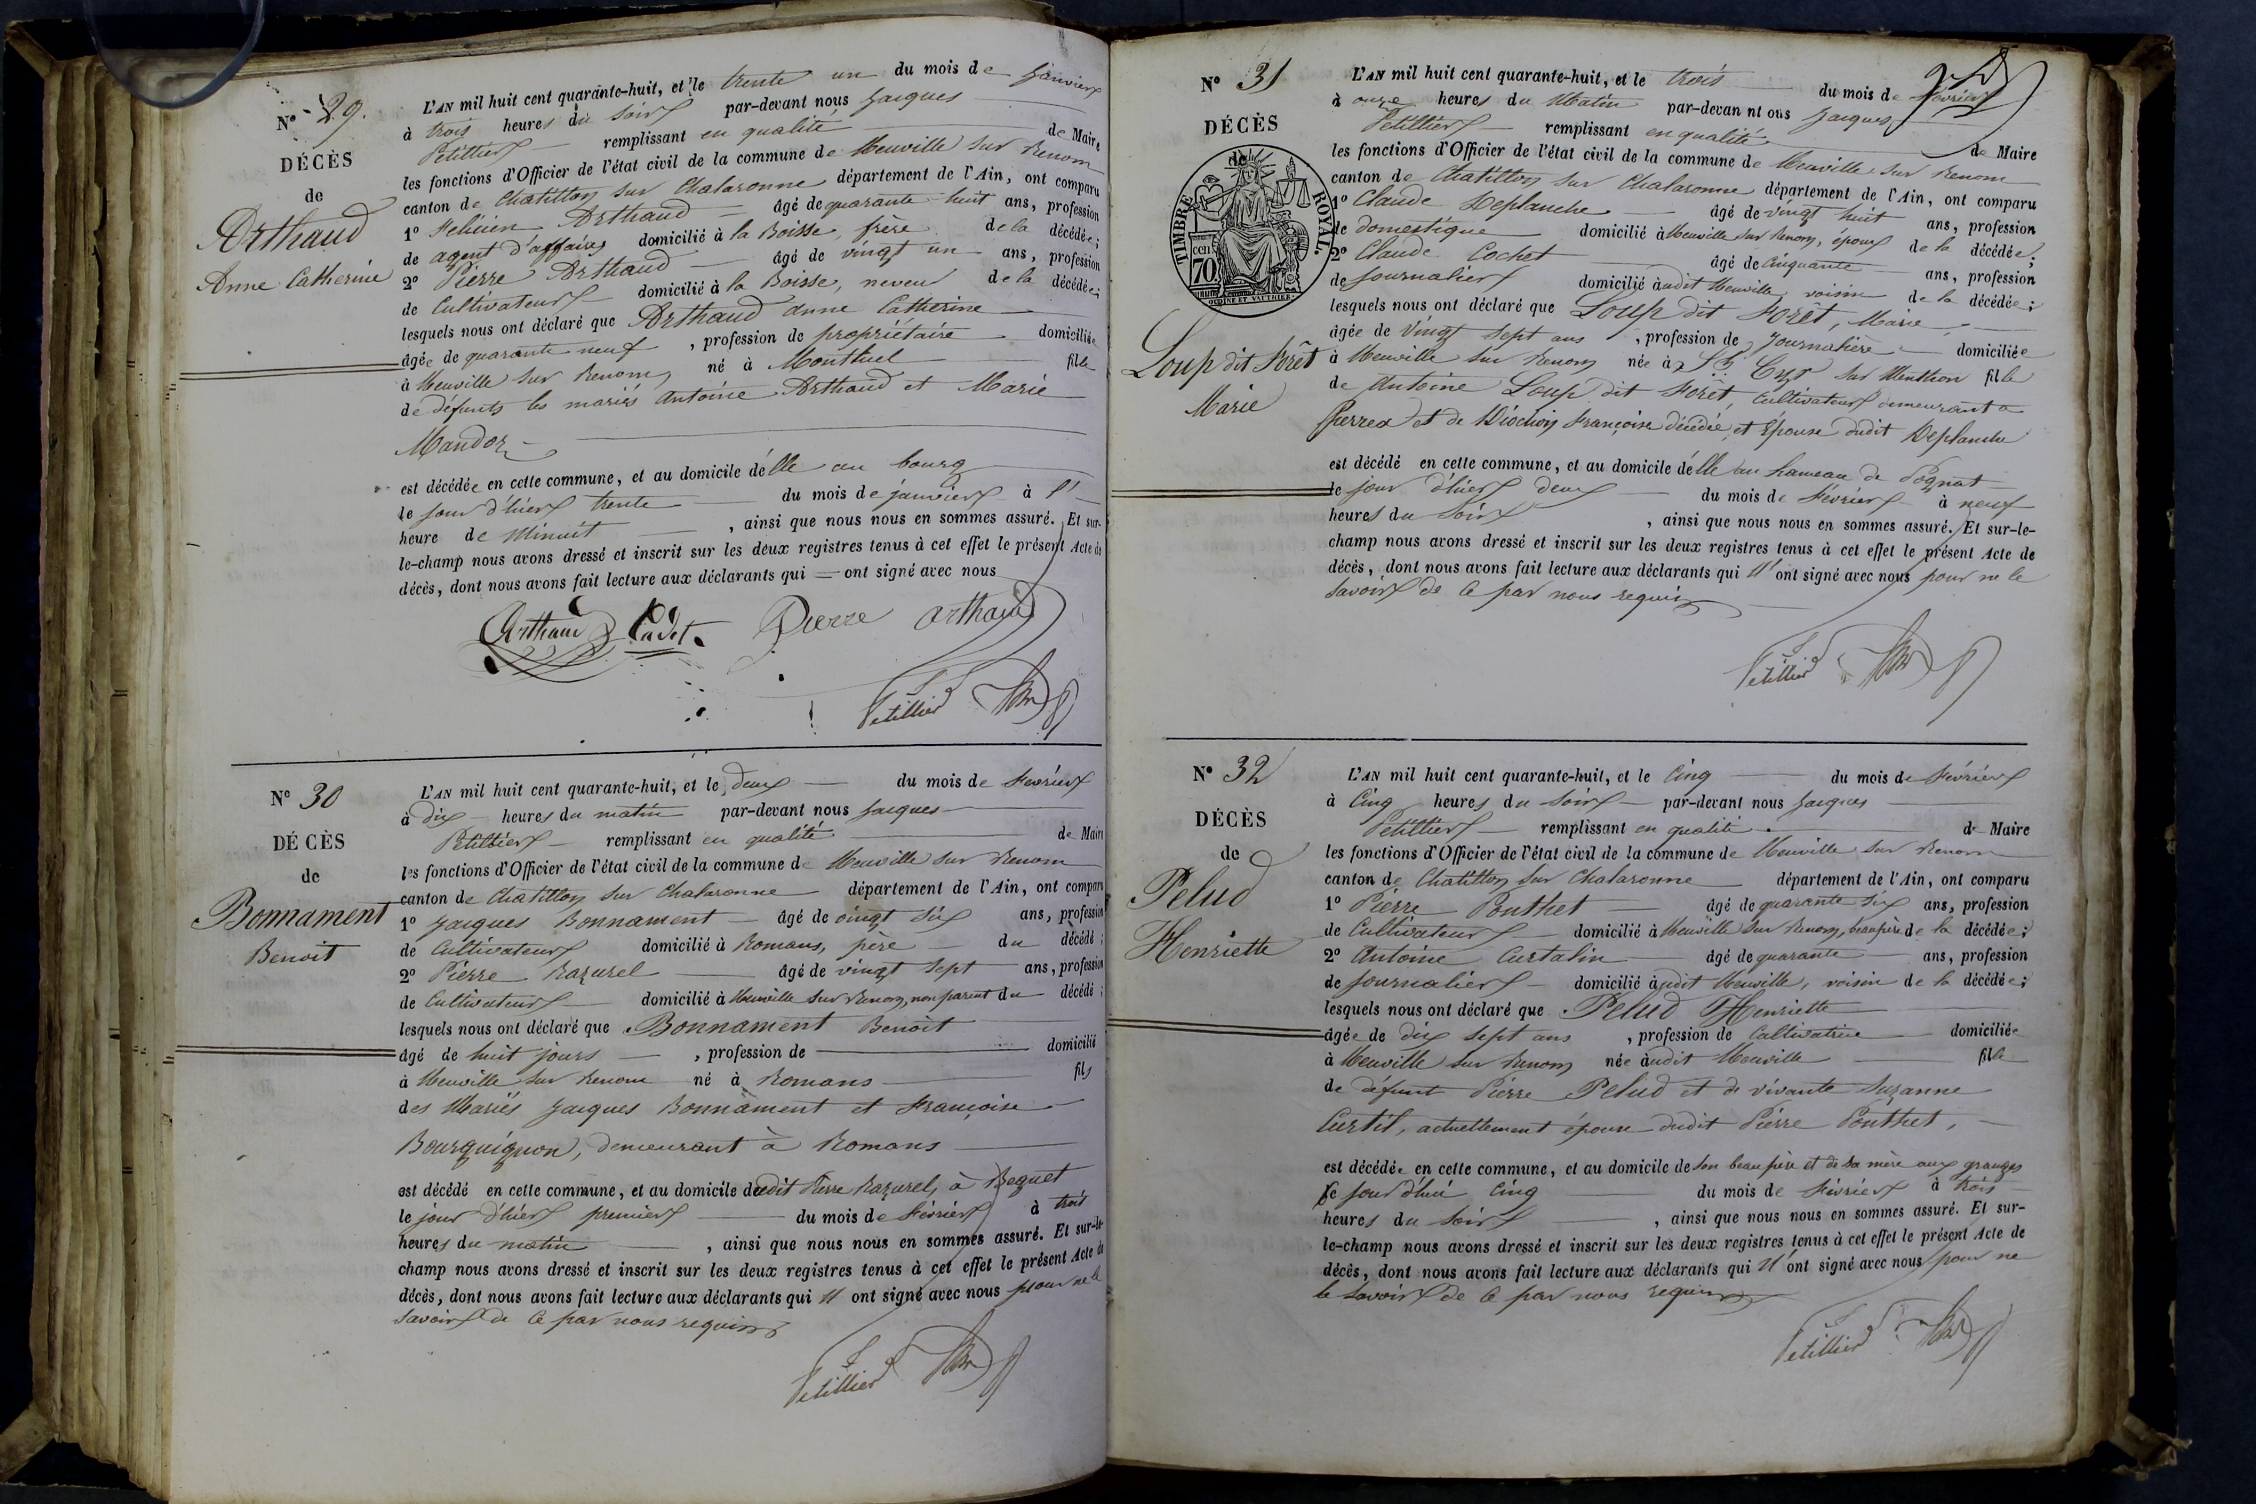 N° 29.
DÉCÈS
de
Arthaud
Anne Catherine
L'AN mil huit cent quarante-huit, et le trente un du mois de Janvier
à trois heures du soir par-devant nous Jacques
Petillier remplissant en qualité de Maire
les fonctions d'Officier de l'état civil de la commune de Neuville sur Renom
canton de Chatillon sur Chalaronne département de l'Ain, ont comparu
1° Arthaud âgé de quarante huit ans, profession
de agent d'affaires domicilié à la Boisse, frère de la décédée;
2° Pierre Arthaud âgé de vingt un ans, profession
de Cultivateur domicilié à la Boisse, neveu de la décédée;
lesquels nous ont déclaré que Arthaud anne Catherine
âgée de quarante neuf , profession de propriétaire domiciliée
à Neuville sur Renom, né à Montluel fille
de défunts les mariés Antoine Arthaud et Marie
Mandor
est décédée en cette commune, et au domicile d'elle au bourg
le jour d'hier trente du mois de janvier à l'
heure de Minuit , ainsi que nous nous en sommes assuré. Et sur-
le-champ nous avons dressé et inscrit sur les deux registres tenus à cet effet le présent Acte de
décès, dont nous avons fait lecture aux déclarants qui ont signé avec nous
Arthaud Cadet Pierre Arthaud
Petillier
N° 30
DÉCÈS
de
Bonnament
Benoit
L'AN mil huit cent quarante-huit, et le deux du mois de Fevrier
à dix heures du matin par-devant nous Jacques
Petillier remplissant en qualité de Maire
les fonctions d'Officier de l'état civil de la commune de Neuville sur Renom
canton de Chatillon sur Chalaronne département de l'Ain, ont comparu
1° Jacques Bonnament âgé de vingt six ans, profession
de Cultivateur domicilié à Romans, père du décédé;
2° Pierre Razurel âgé de vingt sept ans, profession
de Cultivateur domicilié à Neuville sur Renom, non parent du décédé;
lesquels nous ont déclaré que Bonnament Benoit
âgé de huit jours , profession de domicilié
à Neuville sur Renom né à Romans fils
des Mariés Jacques Bonnament et Françoise
Bourguignon, demeurant à Romans
est décédé en cette commune, et au domicile dudit Pierre Razurel, à Bequet
le jour d'hier premier du mois de Février à trois
heures du matin , ainsi que nous nous en sommes assuré. Et sur-le-
champ nous avons dressé et inscrit sur les deux registres tenus à cet effet le présent Acte de
décès, dont nous avons fait lecture aux déclarants qui n' ont signé avec nous pour ne le
savoir de ce par nous requis
Petillier
N° 31
DÉCÈS
de
TIMBRE ROYAL.
70
Loup dit Forêt
Marie
L'AN mil huit cent quarante-huit, et le trois du mois de Février
à onze heures du Matin par-devan nt ous Jacques
Petillier remplissant en qualité de Maire
les fonctions d'Officier de l'état civil de la commune de Neuville sur Renom
canton de Chatillon sur Chalaronne département de l'Ain, ont comparu
1° Claude Deplanche âgé de vingt huit ans, profession
de domestique domicilié à Neuville sur Renom, époux de la décédée;
2° Claude Cochet âgé de cinquante ans, profession
de Journalier domicilié audit Neuville voisin de la décédée;
lesquels nous ont déclaré que Loup dit Forêt, Marie,
âgée de vingt sept ans , profession de Journalière domiciliée
à Neuville sur Renom née à St. Cyr sur Menthon fille
de Antoine Loup dit Forêt, cultivateur demeurant à
Perrex et de Diochon Françoise décédée, et Epouse dudit Deplanche
est décédé en cette commune, et au domicile d'elle au hameau de Pognat
le jour d'hier deux du mois de Février à neuf
heures du Soir , ainsi que nous nous en sommes assuré. Et sur-le-
champ nous avons dressé et inscrit sur les deux registres tenus à cet effet le présent Acte de
décès, dont nous avons fait lecture aux déclarants qui n'ont signé avec nous pour ne le
savoir de ce par nous requis
Petillier
N° 32
DÉCÈS
de
Pelud
Henriette
L'AN mil huit cent quarante-huit, et le Cinq du mois de Février
à Cinq heures du soir par-devant nous Jacques
Petillier remplissant en qualité de Maire
les fonctions d'Officier de l'état civil de la commune de Neuville sur Renom
canton de Chatillon sur Chalaronne département de l'Ain, ont comparu
1° Pierre Ponthet âgé de quarante six ans, profession
de Cultivateur domicilié à Neuville sur Renom, beau père de la décédée;
2° Antoine Curtalin âgé de quarante ans, profession
de Journalier domicilié audit Neuville, voisin de la décédée;
lesquels nous ont déclaré que Pelud Henriette
âgée de dix sept ans , profession de Cultivatrice domiciliée
à Neuville sur Renom née audit Neuville fille
de défunt Pierre Pelud et de vivante Suzanne
Curtil, actuellement épouse dudit Pierre Ponthet,
est décédée en cette commune, et au domicile de son beau père et de sa mère aux granges
le jour d'hui cinq du mois de Février à trois
heures du Soir , ainsi que nous nous en sommes assuré. Et sur-
le-champ nous avons dressé et inscrit sur les deux registres tenus à cet effet le présent Acte de
décès, dont nous avons fait lecture aux déclarants qui n' ont signé avec nous pour ne
le savoir de ce par nous requis
Petillier